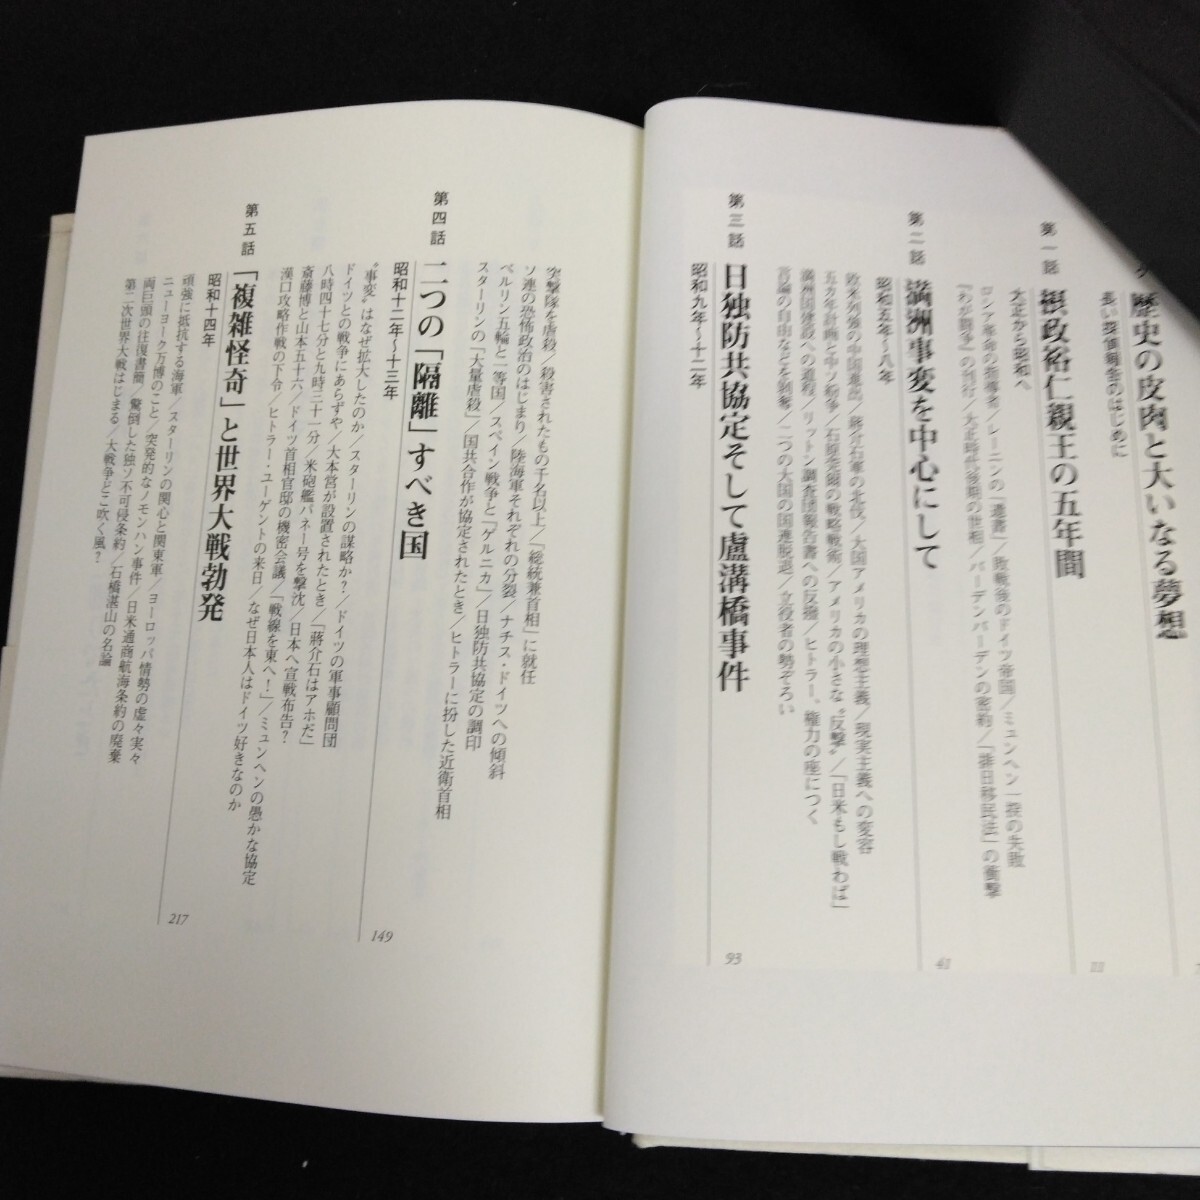 歴史の皮肉と大いなる夢想
長い探偵報告のはじめに
第一話
摂政裕仁親王の五年間
大正から昭和へ
ロシア革命の指導者/レーニンの「遺書」/敗戦後のドイツ帝国/ミュンヘン一揆の失敗
『わが闘争』の刊行/大正時代後期の世相/バーデンバーデンの密約/「排日移民法」の衝撃
11
第二話
満洲事変を中心にして
昭和五年〜八年
欧米列強の中国進出/蔣介石軍の北伐/大国アメリカの理想主義/現実主義への変容
五カ年計画と中ソ紛争/石原莞爾の戦略戦術/アメリカの小さな〝反撃〟/「日米もし戦わば」
満洲国建設への道程/リットン調査団報告書への反撥/ヒトラー、権力の座につく
言論の自由などを剝奪/二つの大国の国連脱退/立役者の勢ぞろい
41
第三話
日独防共協定そして盧溝橋事件
昭和九年〜十二年
93
突撃隊を虐殺/殺害されたもの千名以上/「総統兼首相」に就任
ソ連の恐怖政治のはじまり/陸海軍それぞれの分裂/ナチス・ドイツへの傾斜
ベルリン五輪と一等国/スペイン戦争と「ゲルニカ」/日独防共協定の調印
スターリンの「大量虐殺」/国共合作が協定されたとき/ヒトラーに扮した近衛首相
第四話
二つの「隔離」すべき国
昭和十二年〜十三年
149
〝事変〟はなぜ拡大したのか/スターリンの謀略か?/ドイツの軍事顧問団
ドイツとの戦争にあらずや/大本営が設置されたとき/「蔣介石はアホだ」
八時四十七分と九時三十一分/米砲艦パネー号を撃沈/日本へ宣戦布告?
斎藤博と山本五十六/ドイツ首相官邸の機密会議/「戦線を東へ!」/ミュンヘンの愚かな協定
漢口攻略作戦の下令/ヒトラー・ユーゲントの来日/なぜ日本人はドイツ好きなのか
第五話
「複雑怪奇」と世界大戦勃発
昭和十四年
217
頑強に抵抗する海軍/スターリンの関心と関東軍/ヨーロッパ情勢の虚々実々
ニューヨーク万博のこと/突発的なノモンハン事件/日米通商航海条約の廃棄
両巨頭の往復書簡/驚倒した独ソ不可侵条約/石橋湛山の名論
第二次世界大戦はじまる/大戦争どこ吹く風?